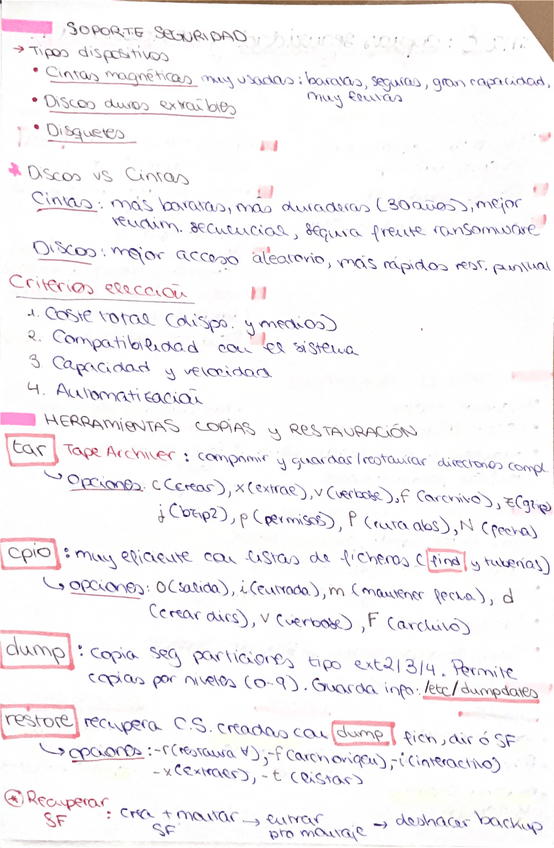 SOPORTE SEGURIDAD
→ Tipos dispositivos
• Cintas magnéticas muy usadas: baratas, seguras, gran capacidad,
muy lentas
• Discos duros extraíbles
• Disquetes
Discos vs Cintas
Cintas: más baratas, más duraderas (30 años), mejor
rendim. secuencial, segura frente ransomware
Discos: mejor acceso aleatorio, más rápidos rest. puntual
Criterios elección
1. Coste total (dispo. y medios)
2. Compatibilidad con el sistema
3 Capacidad y velocidad
4. Automatización
HERRAMIENTAS COPIAS y RESTAURACIÓN
tar Tape Archiver: comprimir y guardar/restaurar directorios compl
↳ Opciones: c(crear), x(extrae), v(verbose), f(archivo), z(gzip)
j(bzip2), p(permisos), P(ruta abs), N(fecha)
cpio: muy eficiente con listas de ficheros (find y tuberías)
↳ opciones: O(salida), i(entrada), m(mantener fecha), d
(crear dirs), v(verbose), F(archivo)
dump: copia seg particiones tipo ext2/3/4. Permite
copias por niveles (0-9). Guarda info: /etc/dumpdates
restore recupera C.S. creadas con dump fich, dir ó SF
↳ opciones: -r(restaura ∀), -f(arch origen), -i(interactivo)
-x(extraer), -t(listar)
* Recuperar : crea + montar → entrar → deshacer backup
SF SF pto montaje